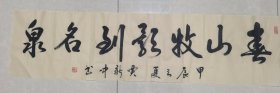 春山牧到名泉
甲辰之夏新中书